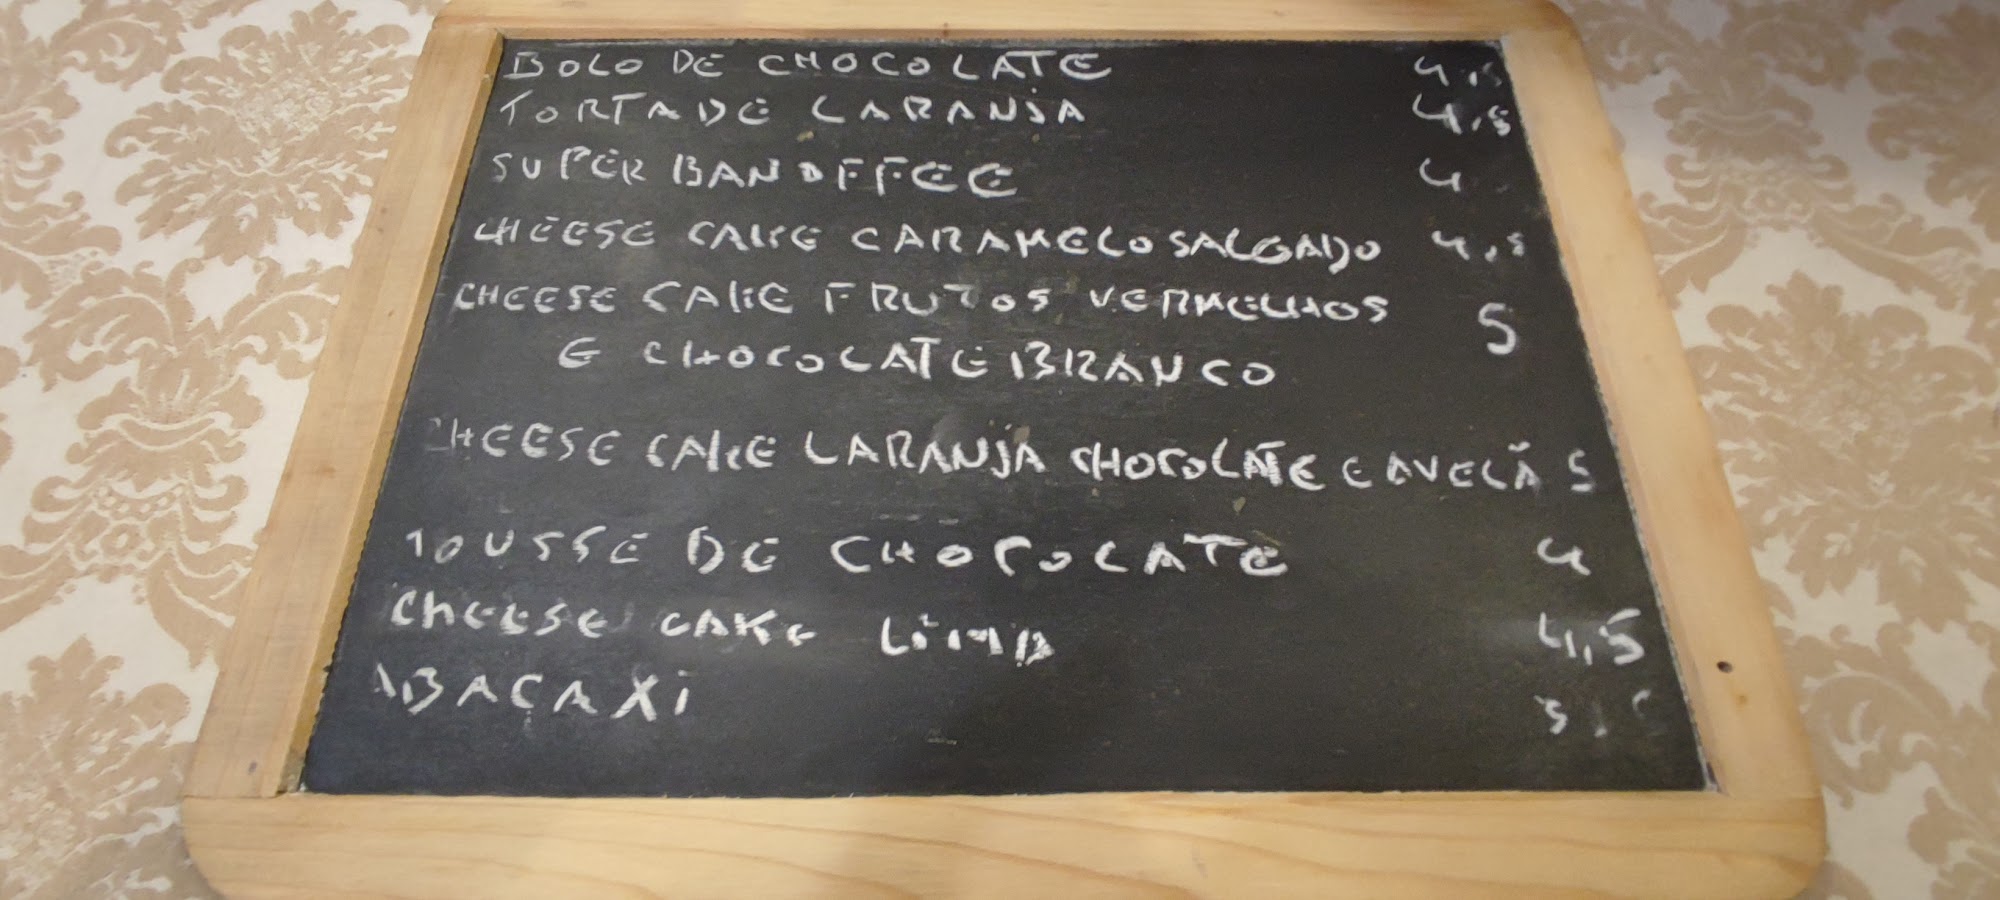 BOLO DE CHOCOLATE 4,5
TORTA DE LARANJA 4,5
SUPER BANOFFEE 4
CHEESE CAKE CARAMELO SALGADO 4,5
CHEESE CAKE FRUTOS VERMELHOS 5
E CHOCOLATE BRANCO
CHEESE CAKE LARANJA CHOCOLATE E AVELÃ 5
MOUSSE DE CHOCOLATE 4
CHEESE CAKE LIMA 4,5
ABACAXI